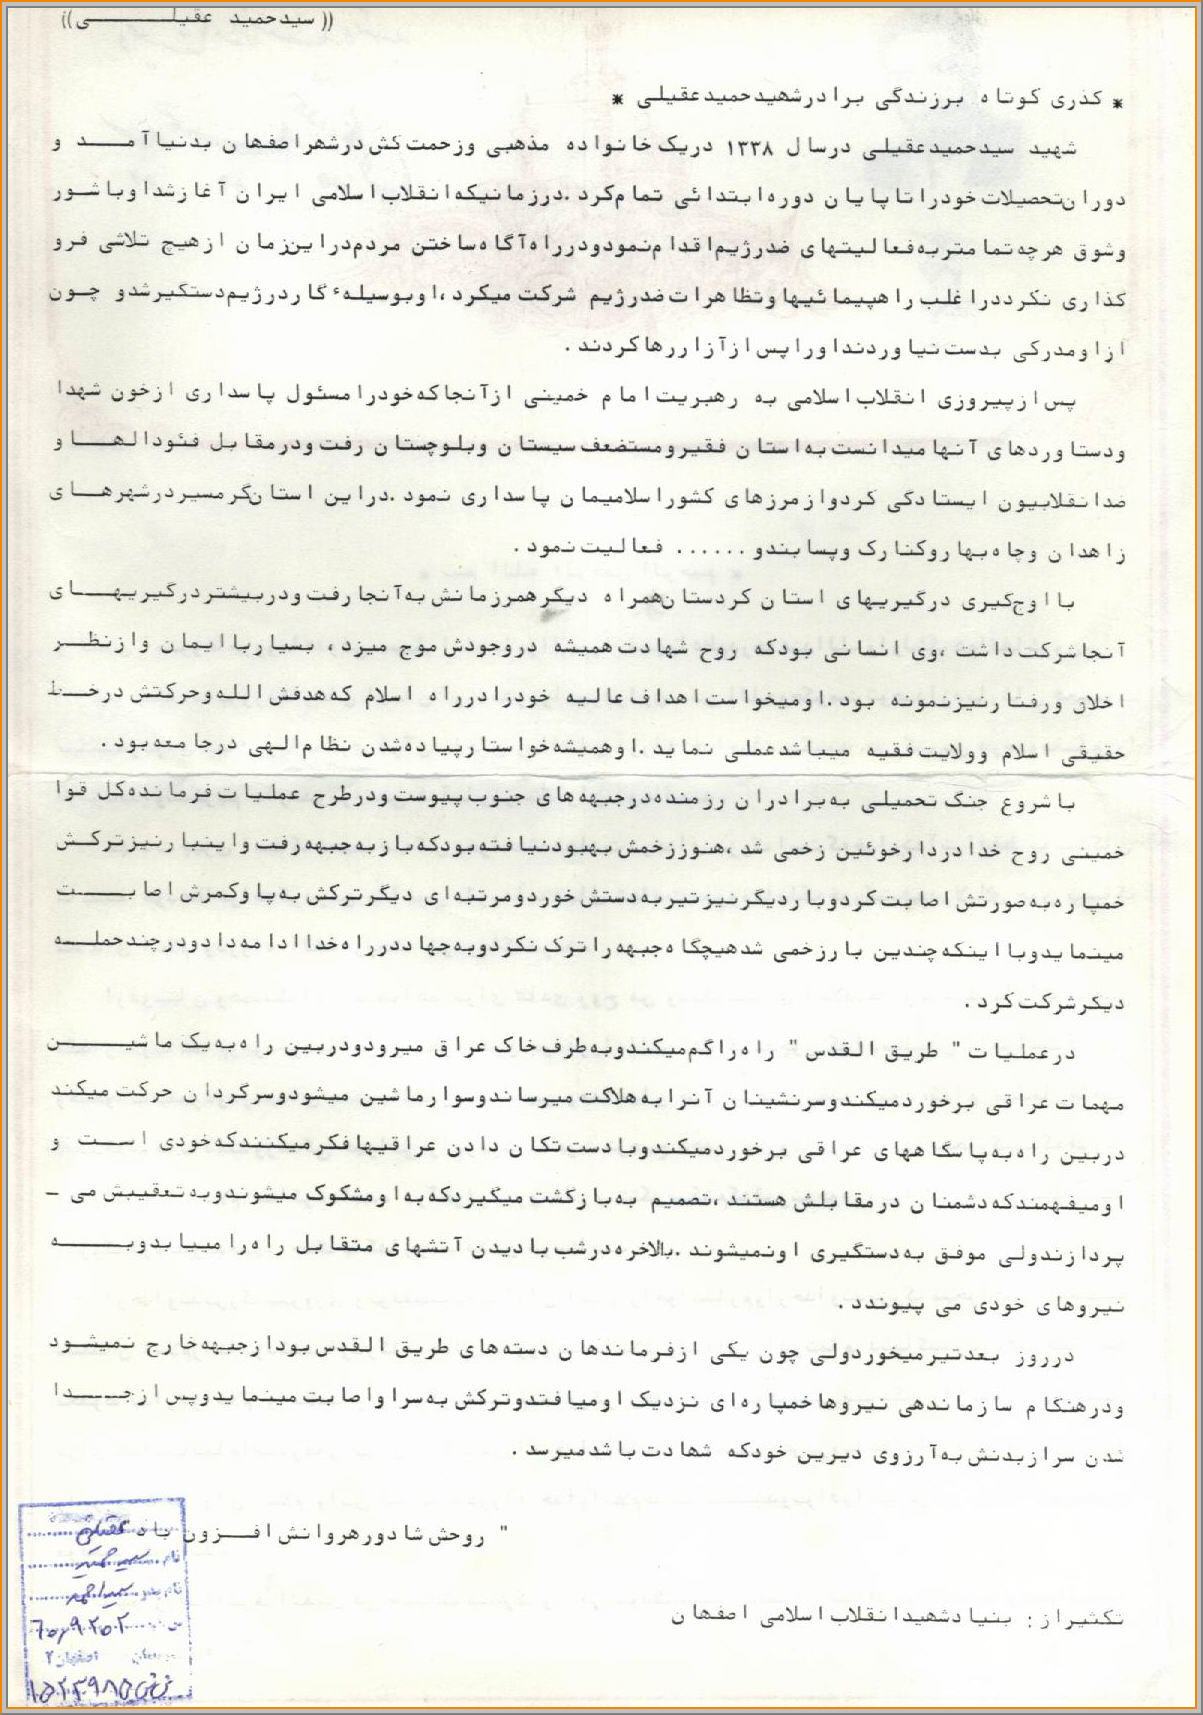 (( سیدحمید عقیلی))
* کذری کوتاه برزندگی برادرشهیدحمیدعقیلی *
شهید سیدحمیدعقیلی درسال ۱۳۳۸ دریک خانواده مذهبی وزحمت کش درشهراصفهان بدنیاآمد و
دوران‌تحصیلات خودراتاپایان دوره‌ابتدائی تمام‌کرد.درزمانیکه‌انقلاب‌اسلامی ایران آغازشداوباشور
وشوق هرچه‌تمامتربه‌فعالیتهای ضدرژیم‌اقدام‌نمودودرراه‌آگاه‌ساختن مردم‌دراین‌زمان ازهیچ تلاشی فرو
کذاری نکرددراغلب راهپیمائیهاوتظاهرات‌ضدرژیم شرکت میکرد،اوبوسیلهٔ گاردرژیم‌دستکیرشدو چون
ازاومدرکی بدست‌نیاوردنداوراپس ازآزاررهاکردند.
پس‌ازپیروزی انقلاب‌اسلامی به رهبریت‌امام خمینی ازآنجاکه‌خودرامسئول پاسداری ازخون شهدا
ودستاوردهای آنهامیدانست به‌استان فقیرومستضعف سیستان وبلوچستان رفت ودرمقابل فئودالهاو
ضدانقلابیون ایستادگی کردوازمرزهای کشوراسلامیمان پاسداری نمود.دراین استان‌گرمسیردرشهرهای
زاهدان وچاه‌بهاروکنارک وپسابندو...... فعالیت‌نمود.
بااوج‌کیری درگیریهای استان کردستان‌همراه دیگرهمرزمانش به‌آنجارفت ودربیشتردرگیریهای
آنجاشرکت‌داشت،وی انسانی بودکه روح شهادت همیشه دروجودش موج میزد، بسیارباایمان وازنظر
اخلاق ورفتارنیزنمونه بود.اومیخواست‌اهداف‌عالیه خودرادرراه اسلام که‌هدفش‌الله‌وحرکتش درخط
حقیقی اسلام وولایت‌فقیه میباشدعملی نماید.اوهمیشه‌خواستارپیاده‌شدن نظام‌الهی درجامعه‌بود.
باشروع جنگ تحمیلی به‌برادران رزمنده‌درجبهه‌های جنوب‌پیوست ودرطرح عملیات‌فرمانده‌کل قوا
خمینی روح خدادردارخوئین زخمی شد،هنوززخمش بهبودنیافته‌بودکه‌بازبه‌جبهه‌رفت واینبارنیزترکش
خمپاره‌به‌صورتش‌اصابت‌کردوباردیگرنیزتیربه‌دستش خوردومرتبه‌ای دیگرترکش به‌پاوکمرش اصابت
مینمایدوبااینکه‌چندین بارزخمی شدهیچگاه‌جبهه‌راترک نکردوبه‌جهاددرراه‌خداادامه‌دادودرچندحمله
دیکرشرکت‌کرد.
درعملیات " طریق القدس " راه‌راگم‌میکندوبه‌طرف‌خاک عراق میرودودربین راه‌به‌یک ماشین
مهمات عراقی برخوردمیکندوسرنشینان آنرابه‌هلاکت میرساندوسوارماشین میشودوسرگردان حرکت میکند
دربین راه‌به‌پاسگاههای عراقی برخوردمیکندوبادست‌تکان دادن عراقیهافکرمیکنندکه‌خودی است و
اومیفهمندکه‌دشمنان درمقابلش هستند،تصمیم به‌بازگشت میگیردکه‌به‌اومشکوک میشوندوبه‌تعقیبش می -
پردازندولی موفق به‌دستگیری اونمیشوند.بالاخره‌درشب بادیدن آتشهای متقابل راه‌رامییابدوبه
نیروهای خودی می پیوندد.
درروز بعدتیرمیخوردولی چون یکی ازفرماندهان دسته‌های طریق القدس بودازجبهه‌خارج نمیشود
ودرهنگام سازماندهی نیروهاخمپاره‌ای نزدیک اومیافتدوترکش به‌سراواصابت مینمایدوپس ازجدا
شدن سرازبدنش به‌آرزوی دیرین خودکه شهادت باشدمیرسد.
" روحش شادورهروانش افزون باد"
تکثیراز: بنیادشهیدانقلاب‌اسلامی اصفهان
عقیلی
نام سید حمید
نام پدر سیداحمد
اصفهان ۲